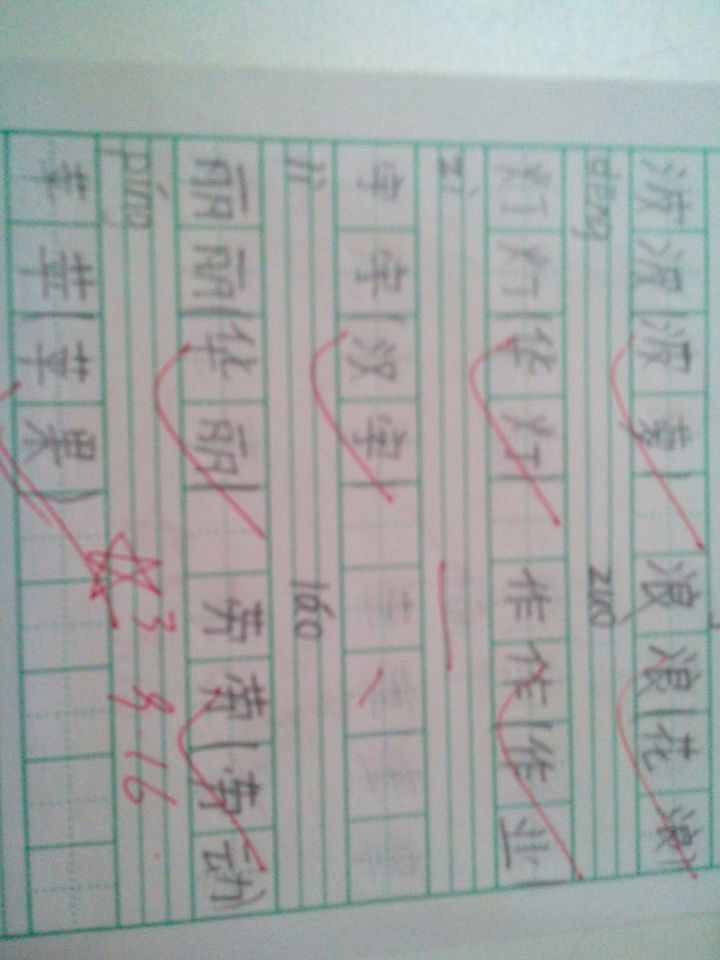 浪 浪(花浪)
dēng zuò
灯 灯(华灯) 作 作(作业)
zì
字 字(汉字)
lì láo
丽 丽(华丽) 劳 劳(劳动)
píng 3 9 16
苹 苹(苹果)